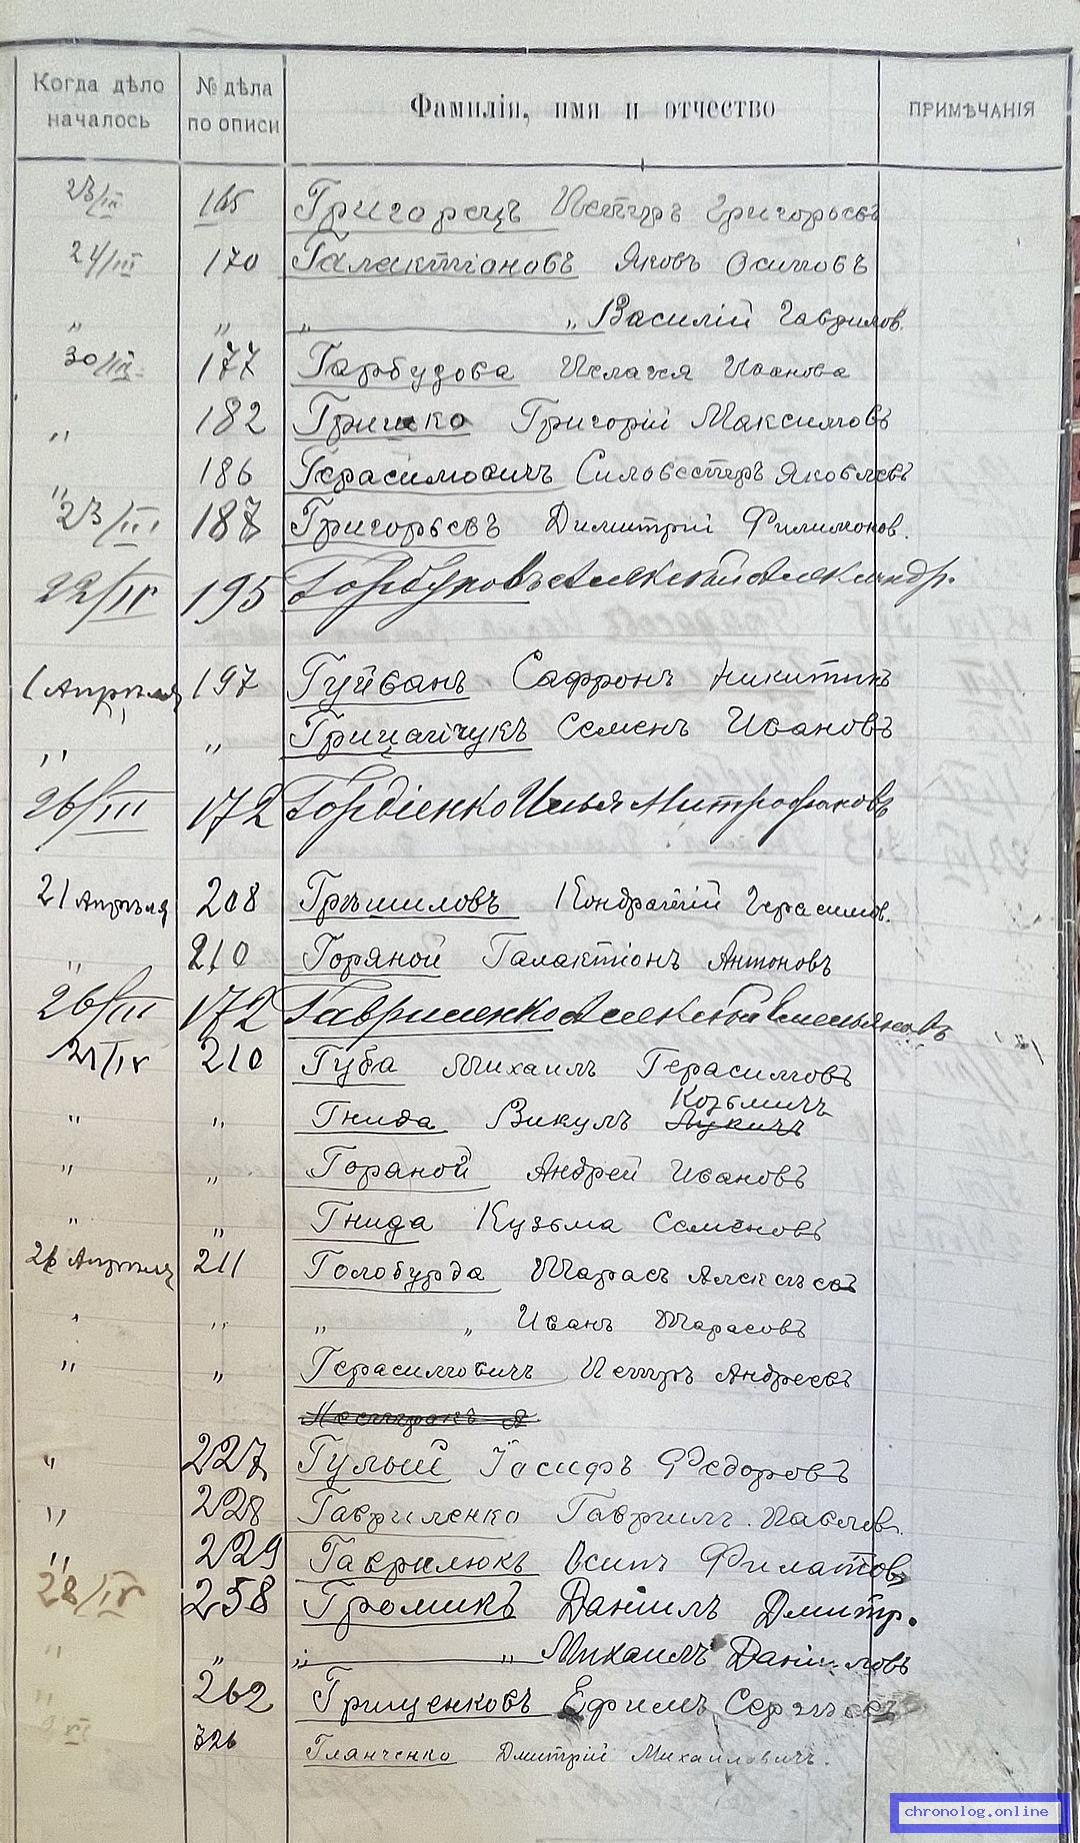 Когда дѣло началось № дѣла по описи Фамилія, имя и отчество ПРИМѢЧАНІЯ
23/III 165 Григорецъ Петръ Григорьевъ
24/III 170 Галактіоновъ Яковъ Осиповъ
" " " " Василій Гаврилов.
30/III 177 Гарбузова Пелагея Иванова
" 182 Гришко Григорій Максимовъ
" 186 Герасимовичъ Силовестръ Яковлевъ
23/III 187 Григорьевъ Димитрій Филимонов.
22/IV 195 Горбуновъ Алексѣй Александр.
1 Апрѣля 197 Гуйванъ Сафронъ Никитинъ
" " Грицайчукъ Семенъ Ивановъ
26/III 172 Гордіенко Илья Митрофановъ
21 Апрѣля 208 Гръшиловъ Кондратій Герасимов.
" 210 Горяной Галактіонъ Антоновъ
26/III 172 Гавриленко Алексѣй Емельяновъ
21/IV 210 Губа Михаилъ Герасимовъ
Козьмичъ
" " Гнида Викулъ Лукичъ
" " Гораной Андрей Ивановъ
" " Гнида Кузьма Семеновъ
26 Апрѣля 211 Голобурда Тарасъ Алексѣевъ
" " " " Иванъ Тарасовъ
" " Герасимовичъ Петръ Андреевъ
" 227 Гулый Іосифъ Федоровъ
" 228 Гавриленко Гавріилъ Павлов.
" 229 Гаврилюкъ Осипъ Филатовъ
28/IV 258 Громикъ Даніилъ Дмитр.
" " " " Михаилъ Даниловъ
" 262 Грищенковъ Ефимъ Сергѣевъ
9 XI 326 Глянченко Дмитрій Михаиловичъ.
chronolog.online